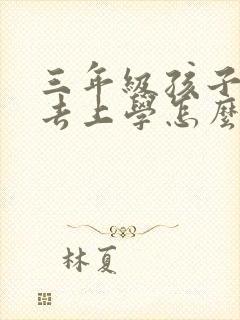 三年級孩子
去上學怎麼
林夏